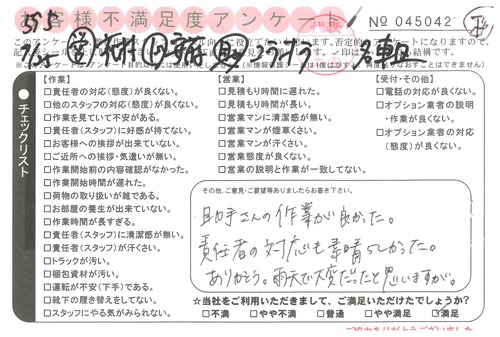 お客様不満足度アンケート
No 045042
チェックリスト
【作業】
□責任者の対応(態度)が良くない。
□他のスタッフの対応(態度)が良くない。
□作業を見ていて不安がある。
□責任者(スタッフ)に好感が持てない。
□お客様への挨拶が出来ていない。
□ご近所への挨拶・気遣いが無い。
□作業開始前の内容確認がなかった。
□作業開始時間が遅れた。
□荷物の取り扱いが雑である。
□お部屋の養生が出来ていない。
□作業時間が長すぎる。
□責任者(スタッフ)に清潔感が無い。
□責任者(スタッフ)が汗くさい。
□トラックが汚い。
□梱包資材が汚い。
□運転が不安(下手)である。
□靴下の履き替えをしてない。
□スタッフにやる気がみられない。
【営業】
□見積もり時間に遅れた。
□見積もり時間が長い。
□営業マンに清潔感が無い。
□営業マンが煙草くさい。
□営業マンが汗くさい。
□営業態度が良くない。
□営業の説明と作業が一致してない。
【受付・その他】
□電話の対応が良くない。
□オプション業者の説明
・作業が良くない。
□オプション業者の対応
(態度)が良くない。
その他、ご意見・ご要望等ありましたらお書き下さい。
助手さんの作業が良かった。
責任者の対応も素晴らしかった。
ありがとう。雨天で大変だったと思いますが。
☆当社をご利用いただきまして、ご満足いただけたでしょうか?
□不満 □やや不満 □普通 □やや満足 ☑満足
ご協力ありがとうございました